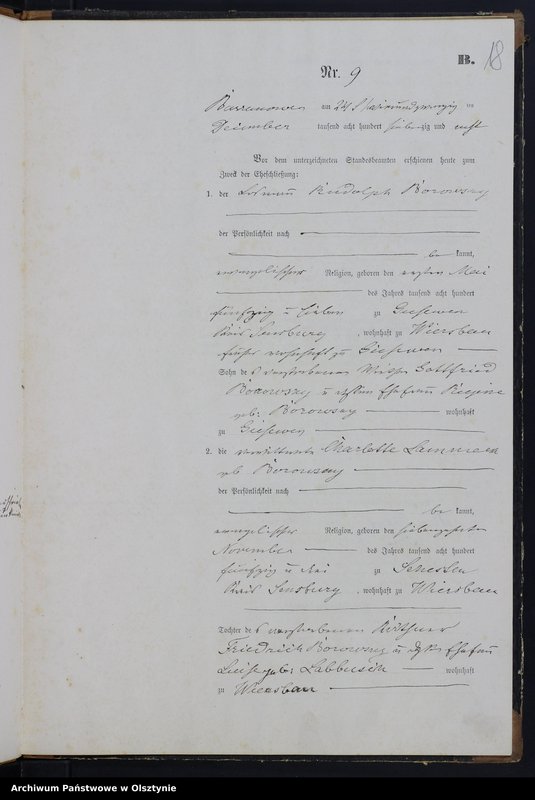 B. 18
Nr. 9
Barranowen am 24 / vierundzwanzig ten
December tausend acht hundert siebenzig und acht
Vor dem unterzeichneten Standesbeamten erschienen heute zum
Zweck der Eheschließung:
1. der Losmann Rudolph Borowsky
der Persönlichkeit nach
be kannt,
evangelischer Religion, geboren den ersten Mai
des Jahres tausend acht hundert
fünfzig u sieben zu Giesewen
Kreis Sensburg, wohnhaft zu Wiersbau
früher wohnhaft zu Giesewen
Sohn des verstorbenen Wirths Gottfried
Borowsky u Ehefrau Regine
geb: Borowsky wohnhaft
zu Giesewen
2. die verwittwete Charlotte
geb. Borowsky
der Persönlichkeit nach
be kannt,
evangelischer Religion, geboren den siebenzehnten
November des Jahres tausend acht hundert
fünfzig u drei zu
Kreis Sensburg, wohnhaft zu Wiersbau
Tochter des verstorbenen Käthner
Friedrich Borowsky u Ehefrau
Luise geb: wohnhaft
zu Wiersbau
Archiwum Państwowe w Olsztynie